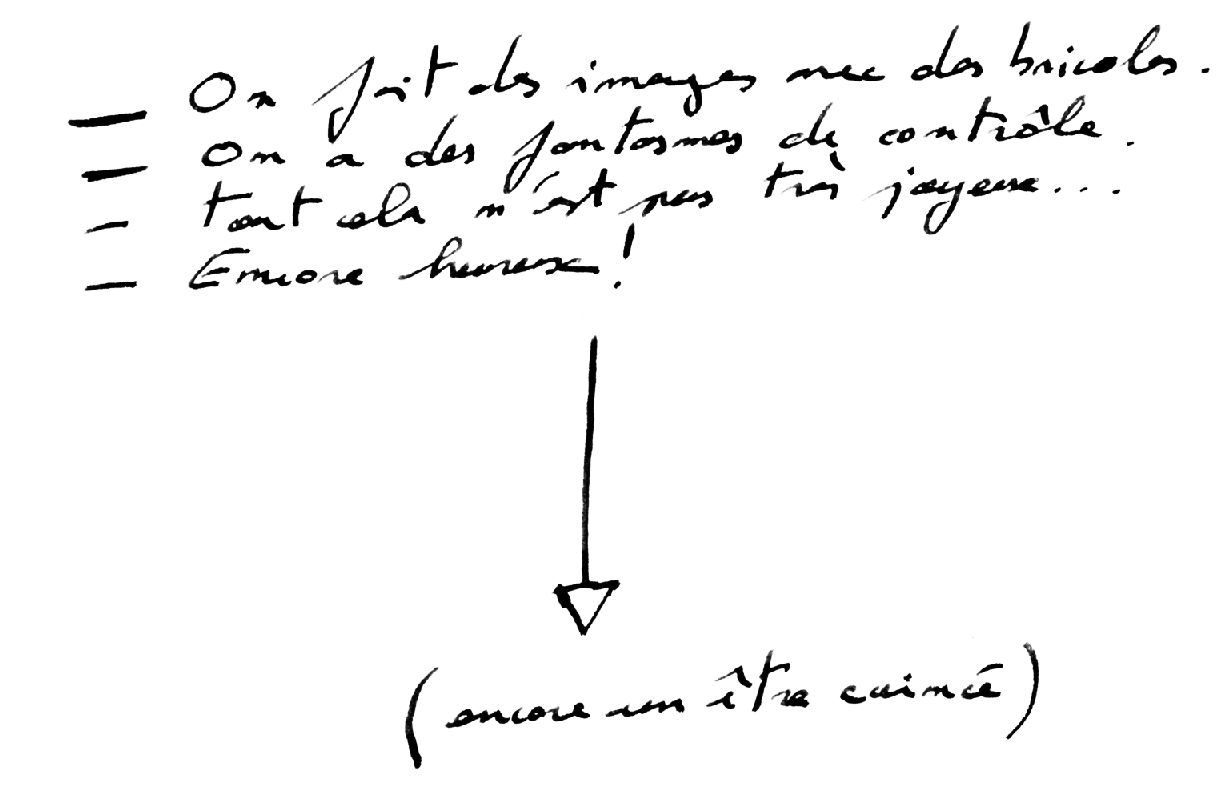 — On fait des images avec des bricoles.
— On a des fantasmes de contrôle.
— Tout cela n'est pas très joyeux...
— Encore heureux !
(encore un être coincé)